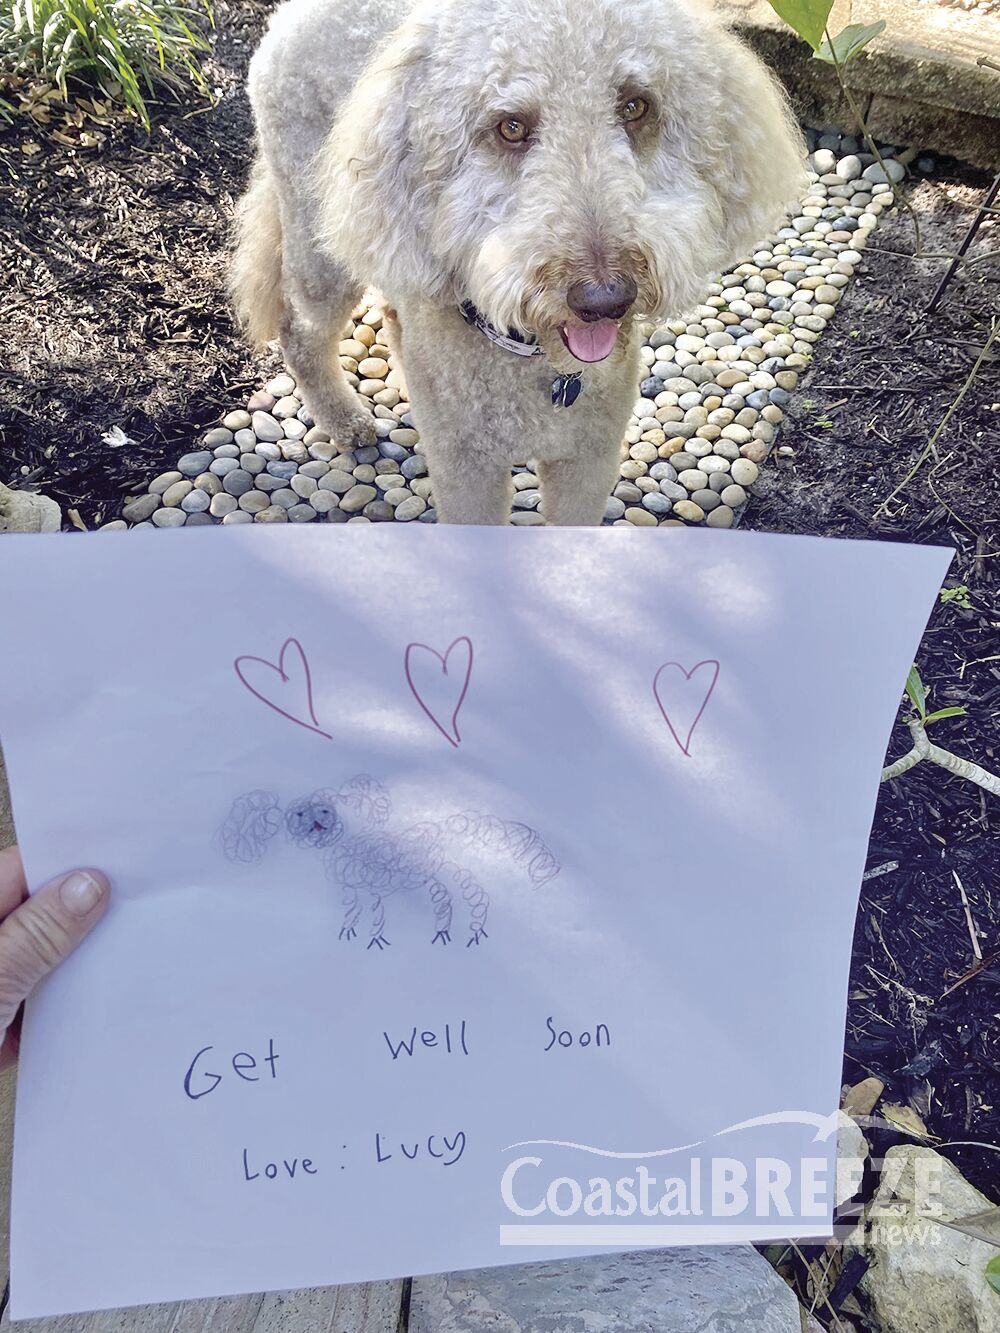 Get Well Soon
Love: Lucy
CoastalBREEZE
news